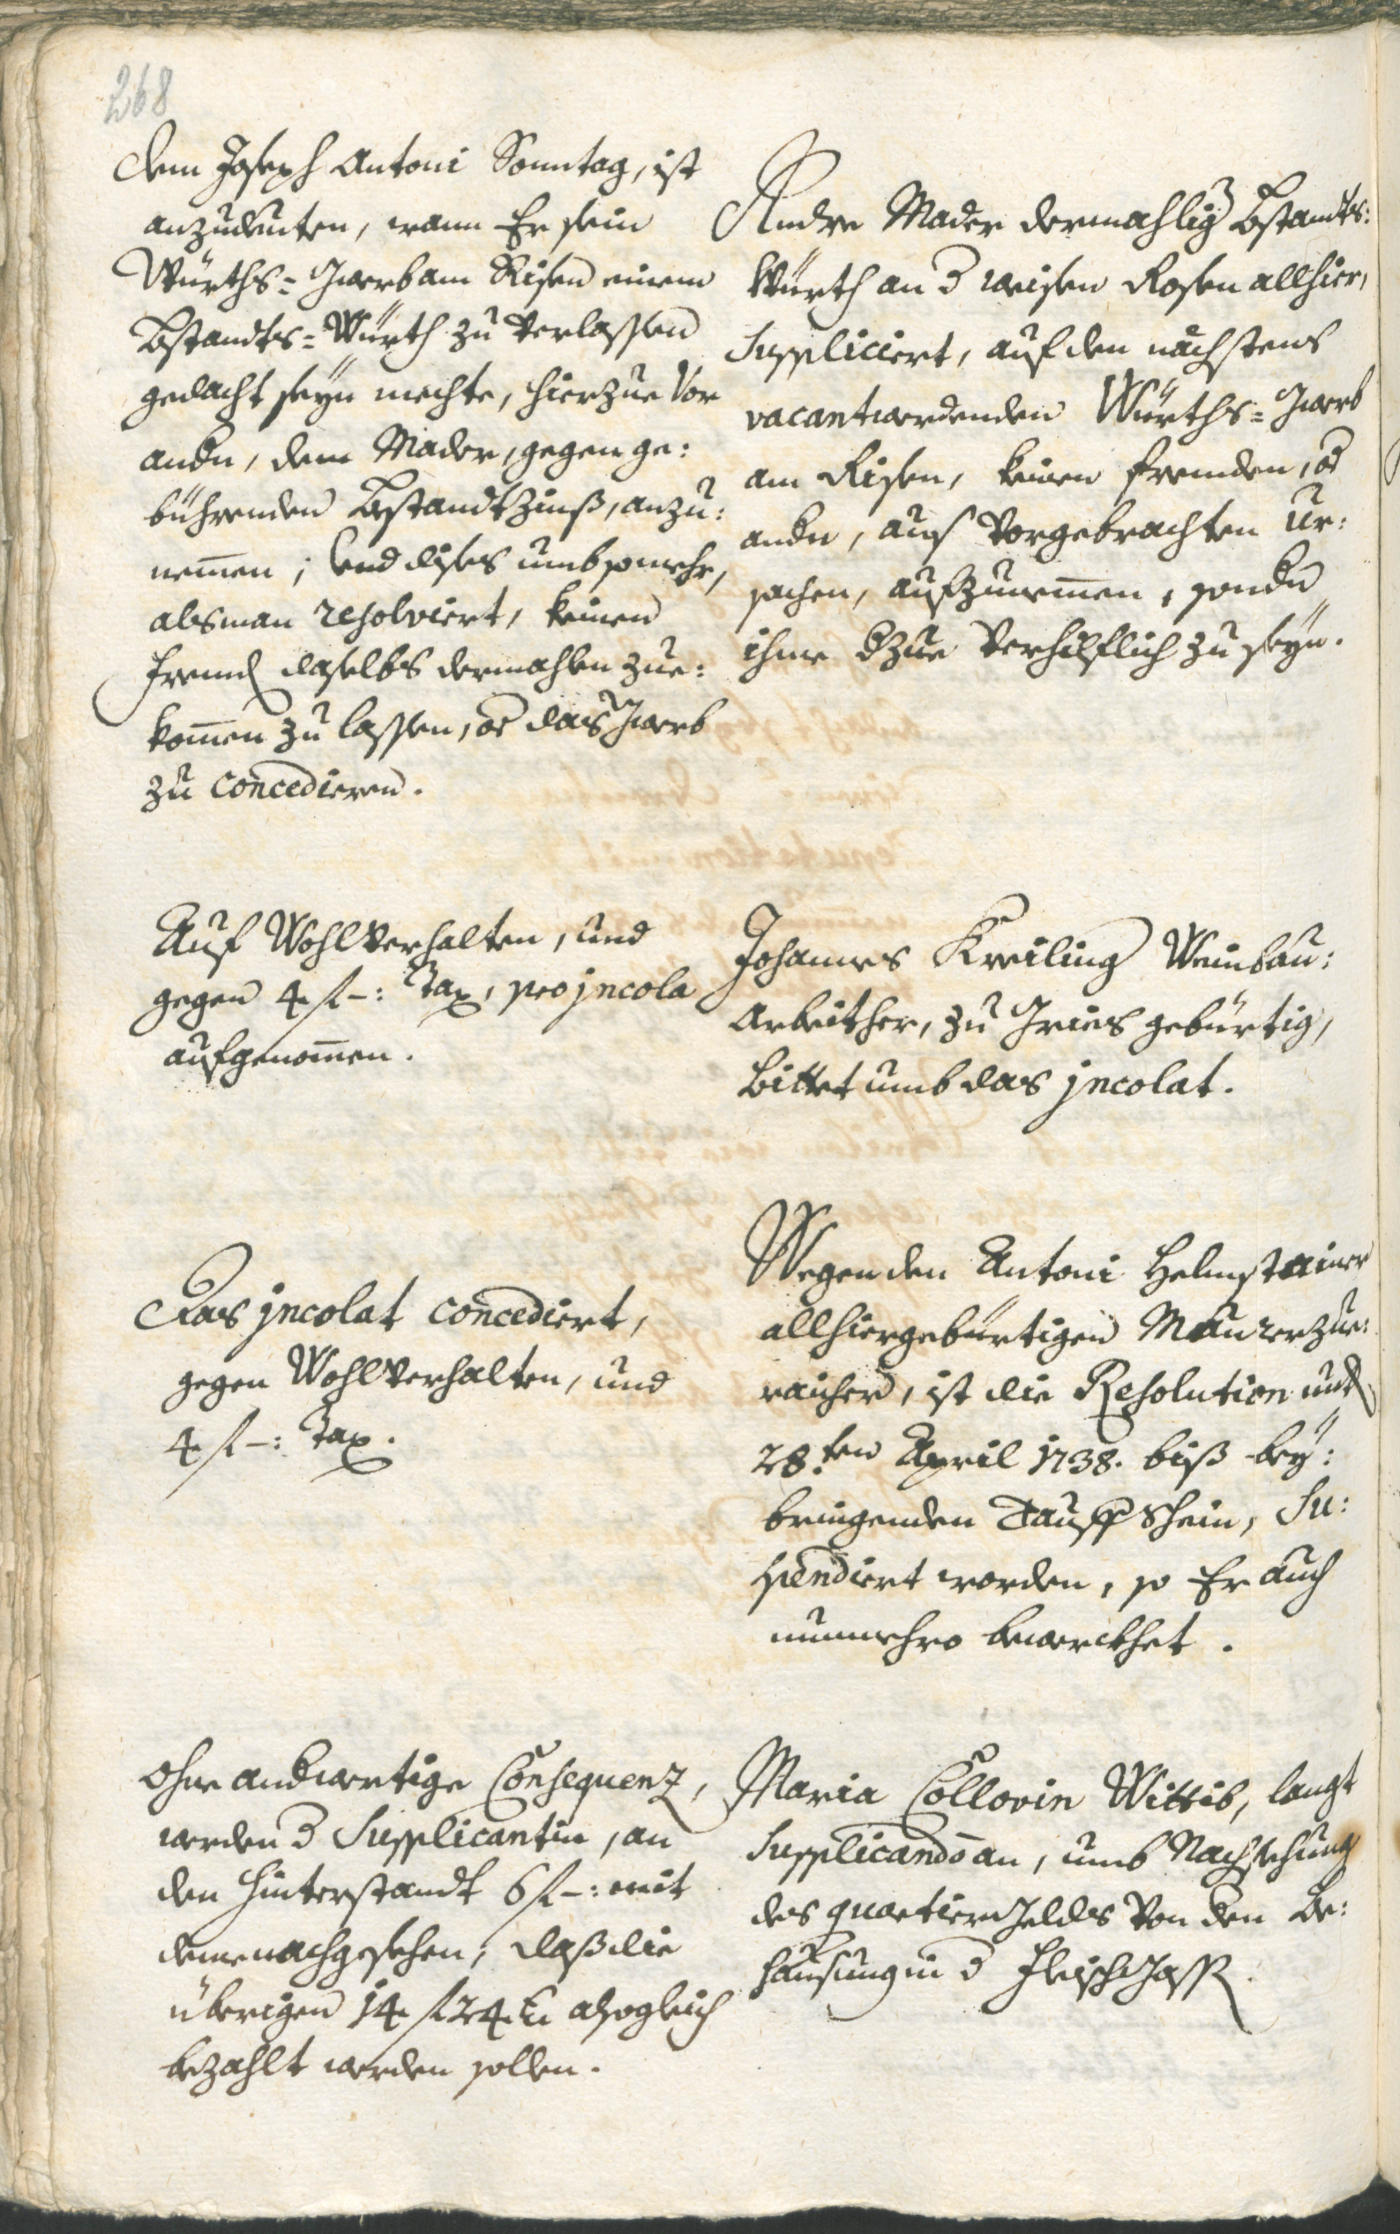 268
Dem Joseph Antoni Sonntag, ist
anzudeuten, wann Er sein
Würths=Gwerb am Risen einem
Bstandts=Würth zu verlassen
gedacht seyn mechte, hierzue vor
andn, dem Mader, gegen ge:
bührenden Bstandtzinß, anzu:
nem̄en; vnd dises umb so mehr,
als man resolviert, keinen
frembd daselbs dermahlen zue:
kom̄en zu lassen, od das Gwerb
zu concedieren.
Andre Mader dermahlig Bstandts:
Würth an d weisen Rosen allhier,
Suppliciert, auf den nächstens
vacant werdenden Würths=Gwerb
am Risen, keinen fremden, od
andn, aus vorgebrachten Ur:
sachen, aufzunem̄en, sondn
ihme dzue verhilflich zu seyn.
Auf Wohlverhalten, und
gegen 4 f –: Tax, pro jncola
aufgenom̄en.
Johannes Kreiling Weinbau:
Arbeither, zu Gries gebürtig,
bittet umb das jncolat.
Das jncolat concediert,
gegen Wohlverhalten, und
4 f –: Tax.
Wegen den Antoni Helmstainer
allhier gebürtigen Maurer zue:
raicher, ist die Resolution untd
28.ten April 1738. biß bey:
bringenden Tauff Schein, Su:
spendiert worden, so Er auch
nunmehro bewerckhet.
Ohne andwertige Consequenz,
werden d Supplicantin, an
den Hinterstandt 6 f –: mit
deme nachgesehen, daß die
überigen 14 f 24 kr alsogleich
bezahlt werden sollen.
Maria Collovin Wittib, langt
Supplicando an, umb Nachsehung
des quartier Gelds von den Be:
hausung in d Fleisch Gass.